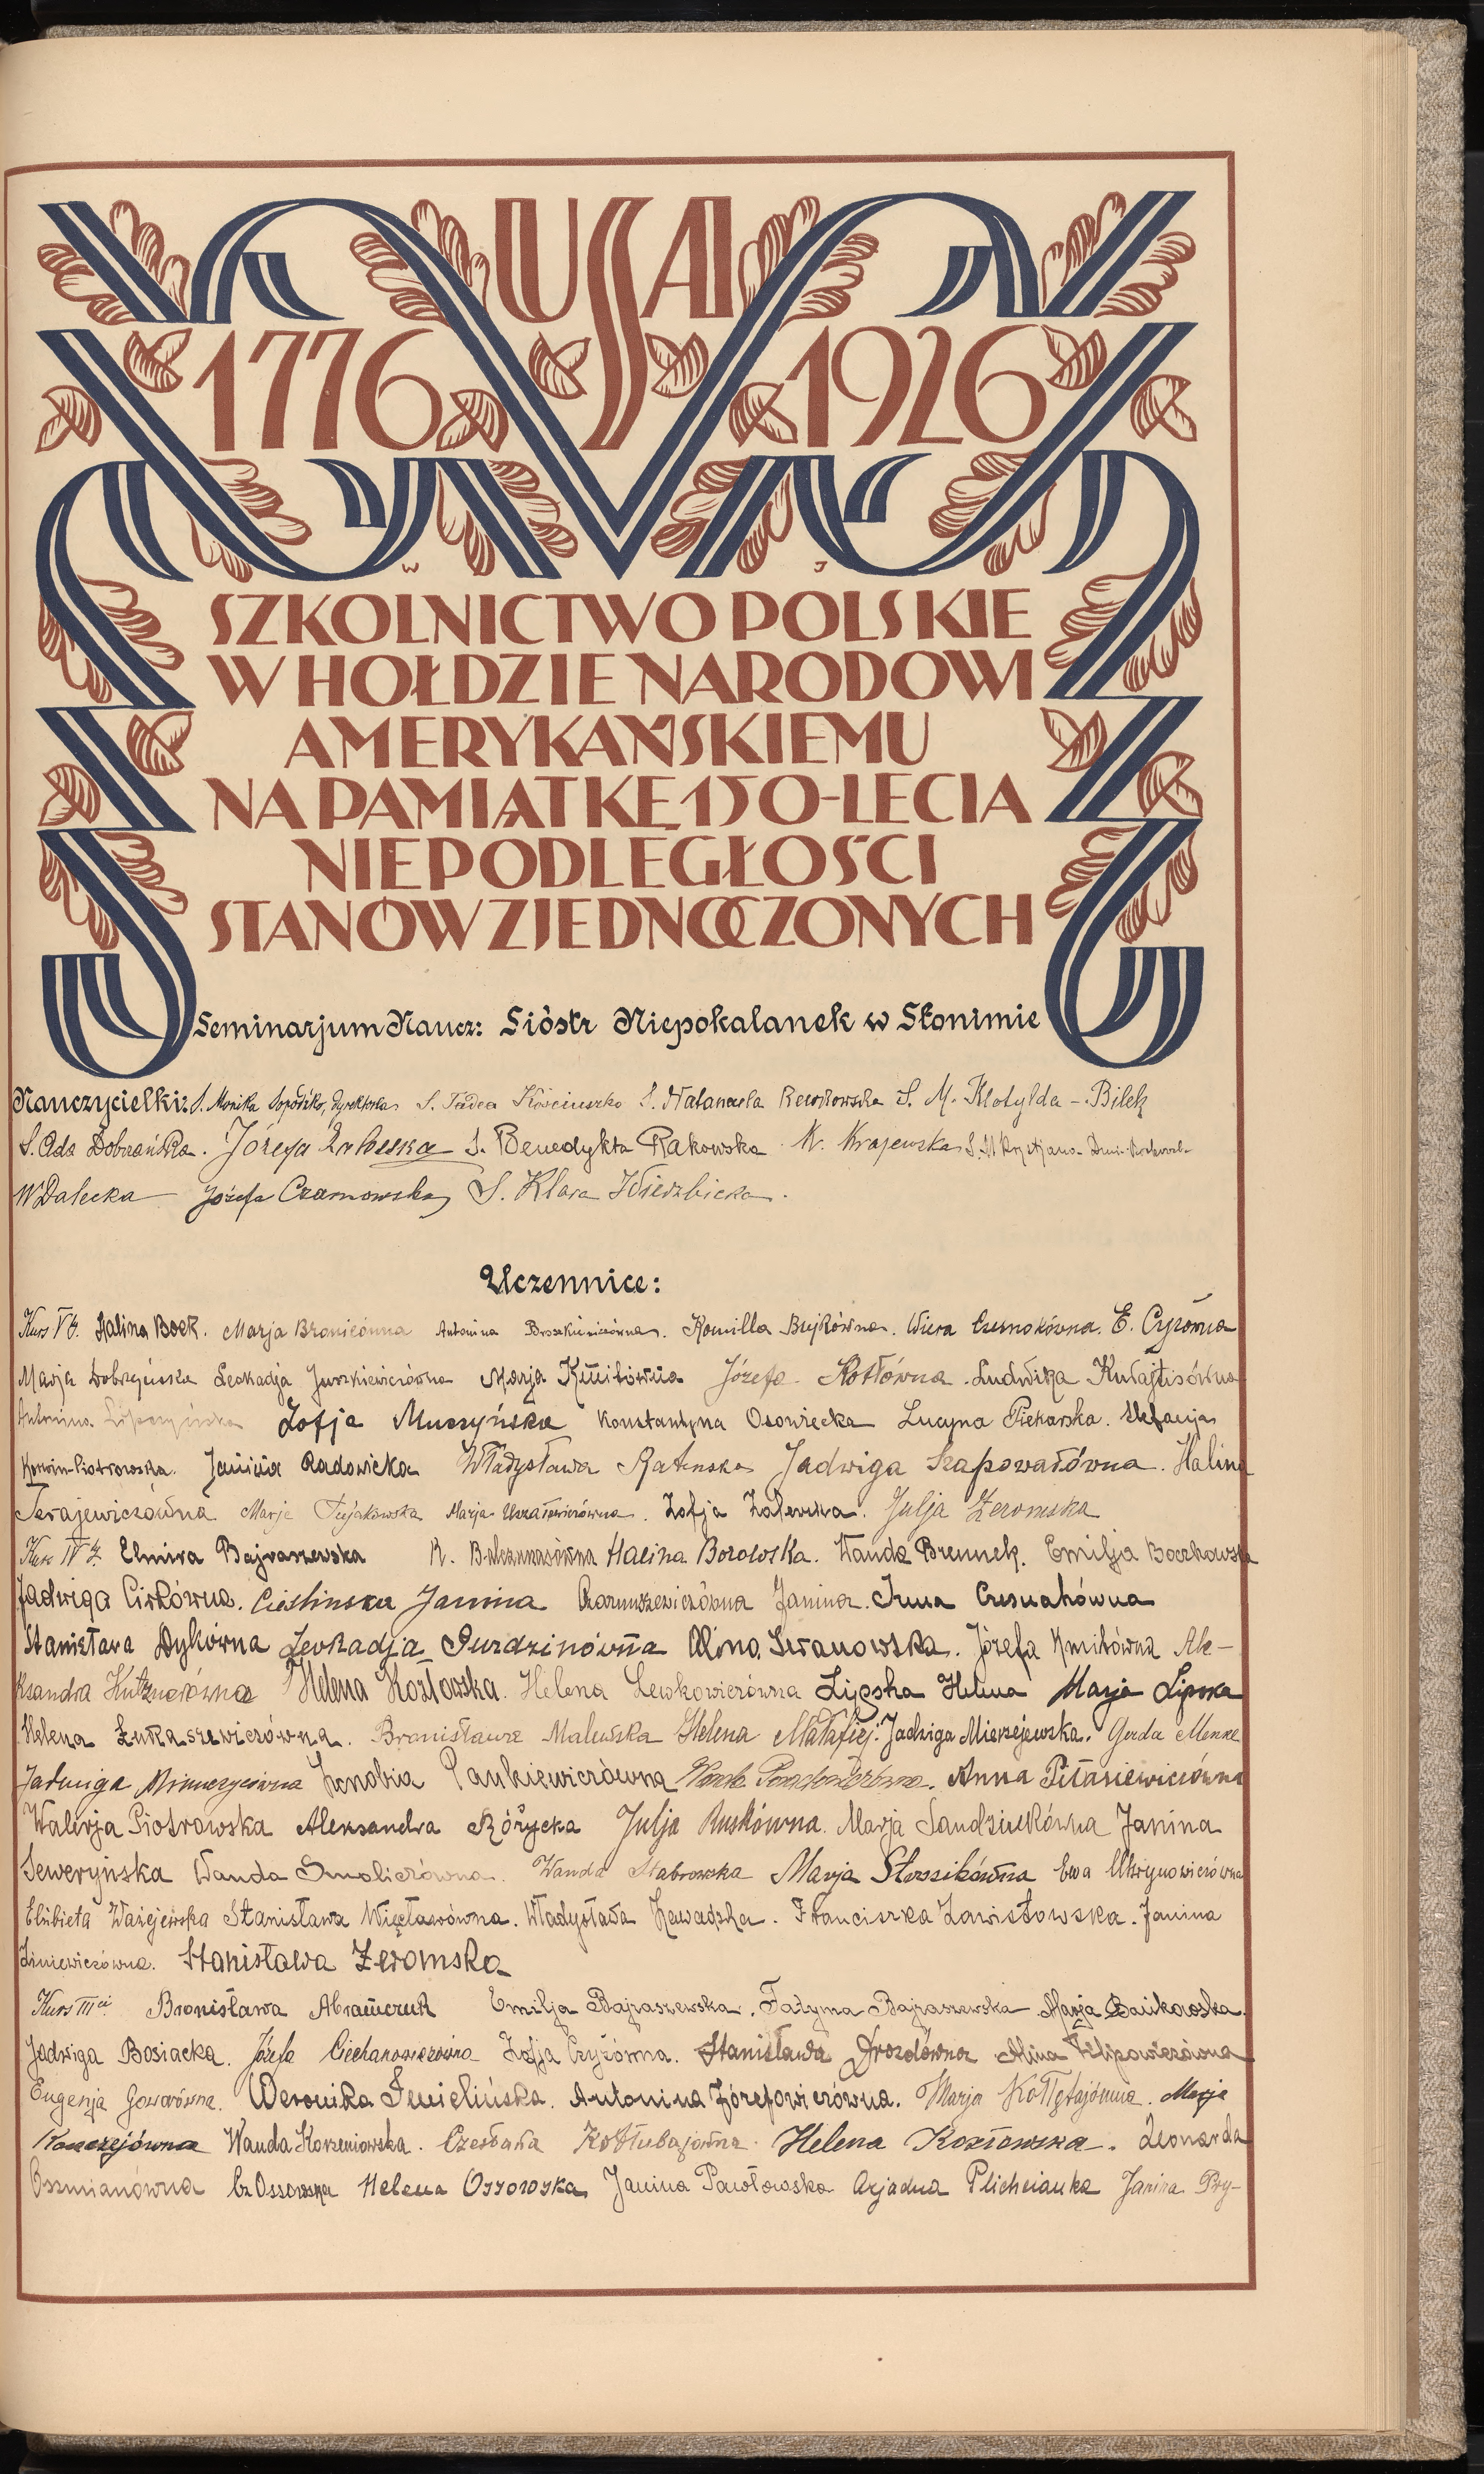 USA
1776 1926
W J
SZKOLNICTWO POLSKIE
W HOŁDZIE NARODOWI
AMERYKAŃSKIEMU
NA PAMIĄTKĘ 150-LECIA
NIEPODLEGŁOŚCI
STANÓW ZJEDNOCZONYCH
Seminarjum Naucz: Sióstr Niepokalanek w Słonimie
Nauczycielki: S. Monika dyrektorka S. Tadea Kościuszko S. Natanaela S. M. Klotylda - Bilek
S. Ada Dobrzańska. Józefa Zaleska S. Benedykta Rakowska. W. Krajewska S. M. Krystjana
W Dalecka Józefa Czarnowska S. Klara Wierzbicka.
Uczennice:
Kurs V ty. Halina Bock. Marja Bronicówna Antonina Kamilla Bujkówna. Wiera Czernokówna. E. Czyżówna
Marja Dobrzyńska Leokadja Juszkiewiczówna Marja Kmitówna Józefa Kotłówna. Ludwika Kułajtisówna
Antonina Lipczyńska Zofja Muczyńska Konstantyna Osowiecka Lucyna Piekarska. Stefanja
Korwin-Piotrowska. Janina Radowicka Władysława Ratenska Jadwiga Szapowałówna. Halina
Terajewiczówna Marja Tujakowska Marja Zofja Zalewska. Julja Żeromska
Kurs IV ty Elmira Bajraszewska R. Balcunasówna Halina Borowska. Wanda Brennek. Emilja Boczkowska
Jadwiga Cirkówna. Cieślinska Janina Czarnuszewiczówna Janina. Irena Czesnakówna
Stanisława Dykówna Leokadja Gurdzinówna Alina Iwanowska. Józefa Kmitówna Ale-
ksandra Helena Kozłowska. Helena Lewkowiczówna Lipska Helena Marja Lipska
Helena Łukaszewiczówna. Bronisława Maluńska Helena Małafiej. Jadwiga Mierzejewska. Gerda Menke
Jadwiga Zenobia Pankiewiczówna Anna Pitasiewiczówna
Walerja Piotrowska Aleksandra Różycka Julja Ruskówna. Marja Sandziukówna Janina
Seweryńska Wanda Smoliczówna. Wanda Stabrowska Marja Stossikówna Ewa Ukrynowiczówna
Elżbieta Ważejewska Stanisława Więcławówna. Władysława Zawadzka. Franciszka Zawistowska. Janina
Ziniewiczówna. Stanisława Żeromska
Kurs III ci Bronisława Abramczuk Emilja Bajraszewska. Fatyma Bajraszewska Marja Bańkowska.
Jadwiga Bosiacka. Józefa Ciechanowiczówna Zofja Czyżówna. Stanisława Drozdówna Alina Filipowiczówna
Eugenja Goworówna. Weronika Imielińska. Antonina Józefowiczówna. Marja Kołłątajówna. Marja
Wanda Korzeniowska. Czesława Kotłubajówna. Helena Kozłowska. Leonarda
Oszmianówna Cz Ossowska Helena Ossowska Janina Pawłowska Arjadna Plichcianka Janina Pry-